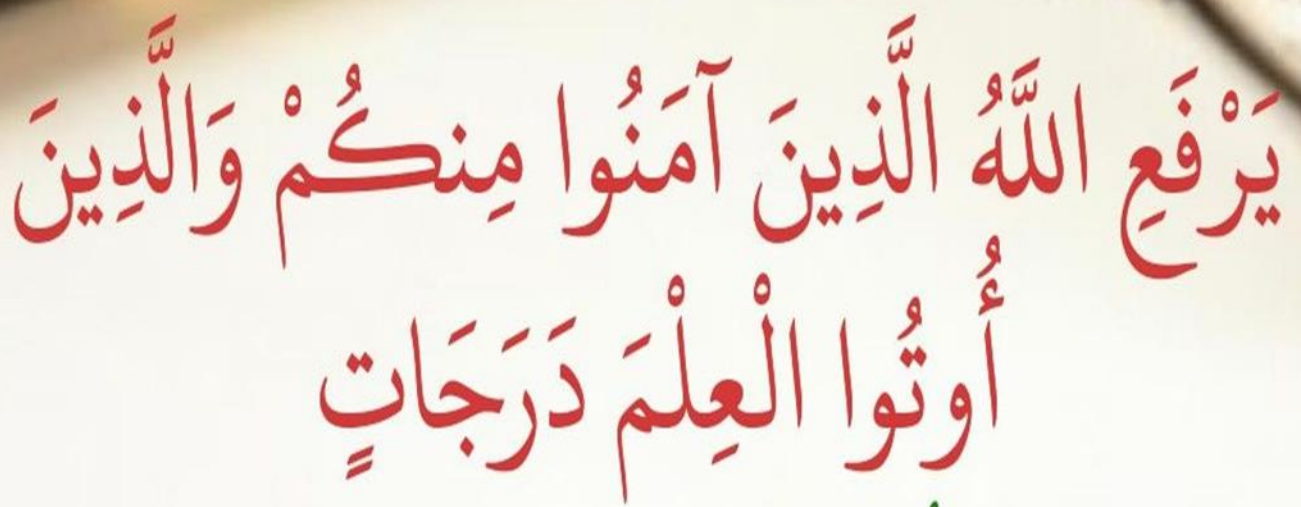 يَرْفَعِ اللَّهُ الَّذِينَ آمَنُوا مِنكُمْ وَالَّذِينَ
أُوتُوا الْعِلْمَ دَرَجَاتٍ